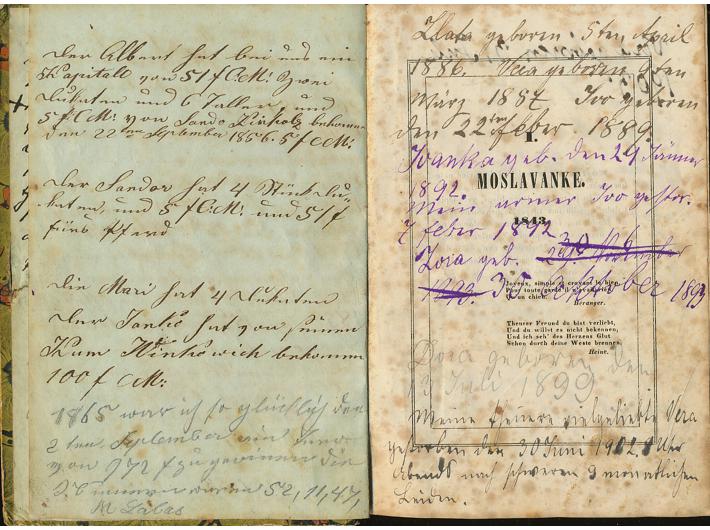 Der Albert hat bei uns ein
Kapitall von 51 f CM: Zwei
Dukaten und 6 Taller, und
5 f CM: von Sandor bekommen
den 22ten September 1856. 5 f CM:
Der Sandor hat 4 Stück Du-
katen, und 5 f CM: und 51 f
fürs Pferd
Die Mari hat 4 Dukaten
Der Janko hat von seinem
Kum bekommen
100 f CM:
1865 war ich so glücklich den
2ten September ein
von 972 f zu gewinnen die
waren 52, 11, 47,
Zlata geboren 5ten April
1886. Vera geboren 9ten
März 1887 Ivo geboren
den 22ten Feber 1889.
I.
Ivanka geb. den 29 Jänner
1892.
MOSLAVANKE.
Mein armer Ivo gestor.
1843
7 feber 1892
Zora geb.
Oktober 1893
Joyeux, simple et croyant le bien,
Pour toute garde il n'avait rien
Qu'un chien.
Beranger.
Theurer Freund du bist verliebt,
Und du willst es nicht bekennen,
Und ich seh' des Herzens Glut
Schon durch deine Weste brennen.
Heine.
Dora geboren den
13 Juli 1899
Meine theuere vielgeliebte Vera
gestorben den 30 Juni 1902 8 Uhr
Abends nach schweren 9 monatlichen
Leiden.